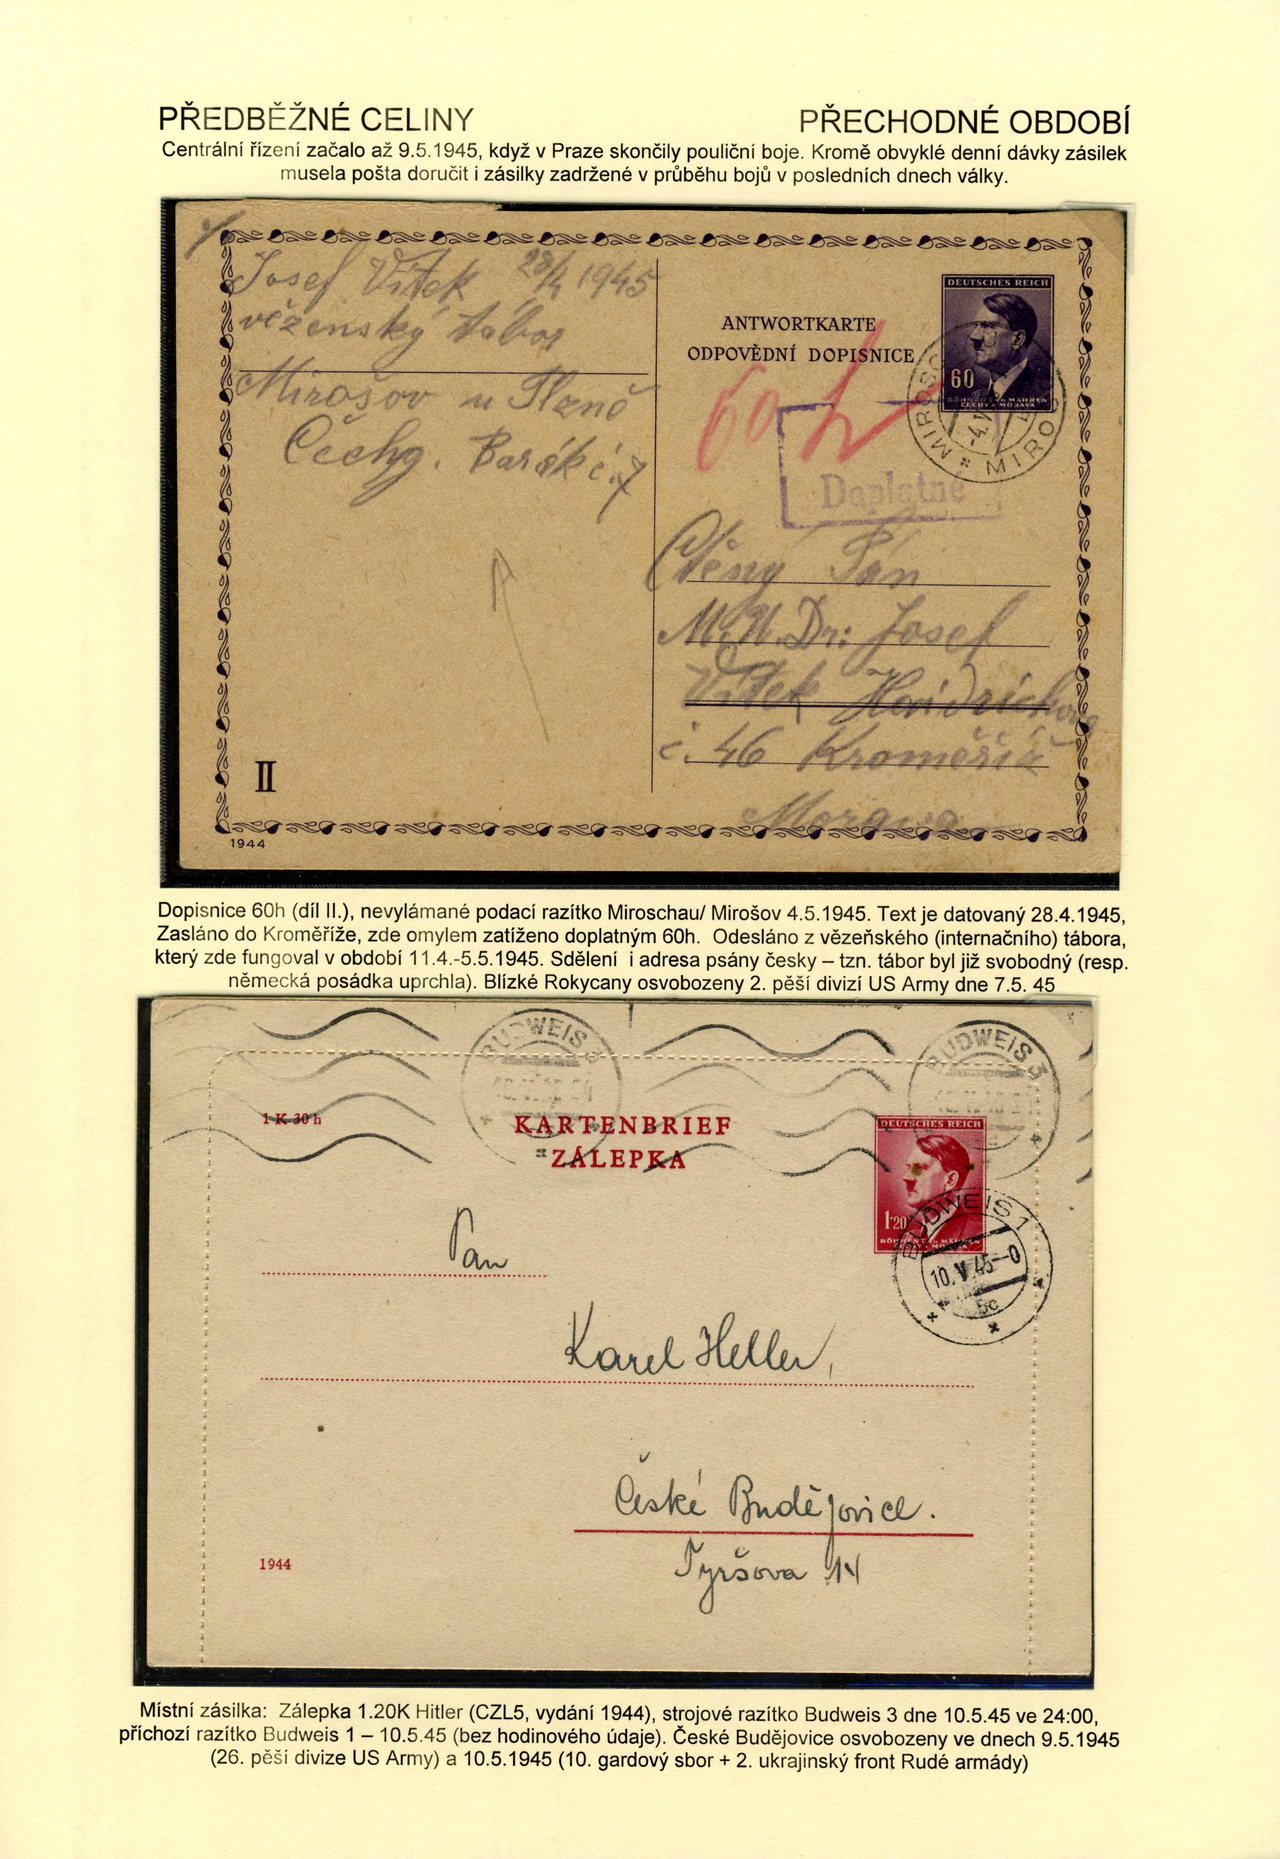 PŘEDBĚŽNÉ CELINY
PŘECHODNÉ OBDOBÍ
Centrální řízení začalo až 9.5.1945, když v Praze skončily pouliční boje. Kromě obvyklé denní dávky zásilek
musela pošta doručit i zásilky zadržené v průběhu bojů v posledních dnech války.
Josef Vítek 28/4 1945
věženský tábor
Mirošov u Plzně
Čechy. Barák č. 7
ANTWORTKARTE
ODPOVĚDNÍ DOPISNICE
DEUTSCHES REICH
60
BÖHMEN U. MÄHREN
ČECHY A MORAVA
MIROSC
-4.V
MIRO
60 h
Doplatné
Ctěný Pán
M.U.Dr: Josef
Vítek Hajdrichova
č. 46 Kroměříž
Morava
II
1944
Dopisnice 60h (díl II.), nevylámané podací razítko Miroschau/ Mirošov 4.5.1945. Text je datovaný 28.4.1945,
Zasláno do Kroměříže, zde omylem zatíženo doplatným 60h. Odesláno z vězeňského (internačního) tábora,
který zde fungoval v období 11.4.-5.5.1945. Sdělení i adresa psány česky – tzn. tábor byl již svobodný (resp.
německá posádka uprchla). Blízké Rokycany osvobozeny 2. pěší divizí US Army dne 7.5. 45
BUDWEIS 3
BUDWEIS 3
1 K 30 h
KARTENBRIEF
ZÁLEPKA
DEUTSCHES REICH
1·20
BÖHMEN U. MÄHREN
BUDWEIS 1
10.V.45-0
5c
Pan
Karel Heller,
České Budějovice.
Tyršova 14
1944
Místní zásilka: Zálepka 1.20K Hitler (CZL5, vydání 1944), strojové razítko Budweis 3 dne 10.5.45 ve 24:00,
příchozí razítko Budweis 1 – 10.5.45 (bez hodinového údaje). České Budějovice osvobozeny ve dnech 9.5.1945
(26. pěší divize US Army) a 10.5.1945 (10. gardový sbor + 2. ukrajinský front Rudé armády)